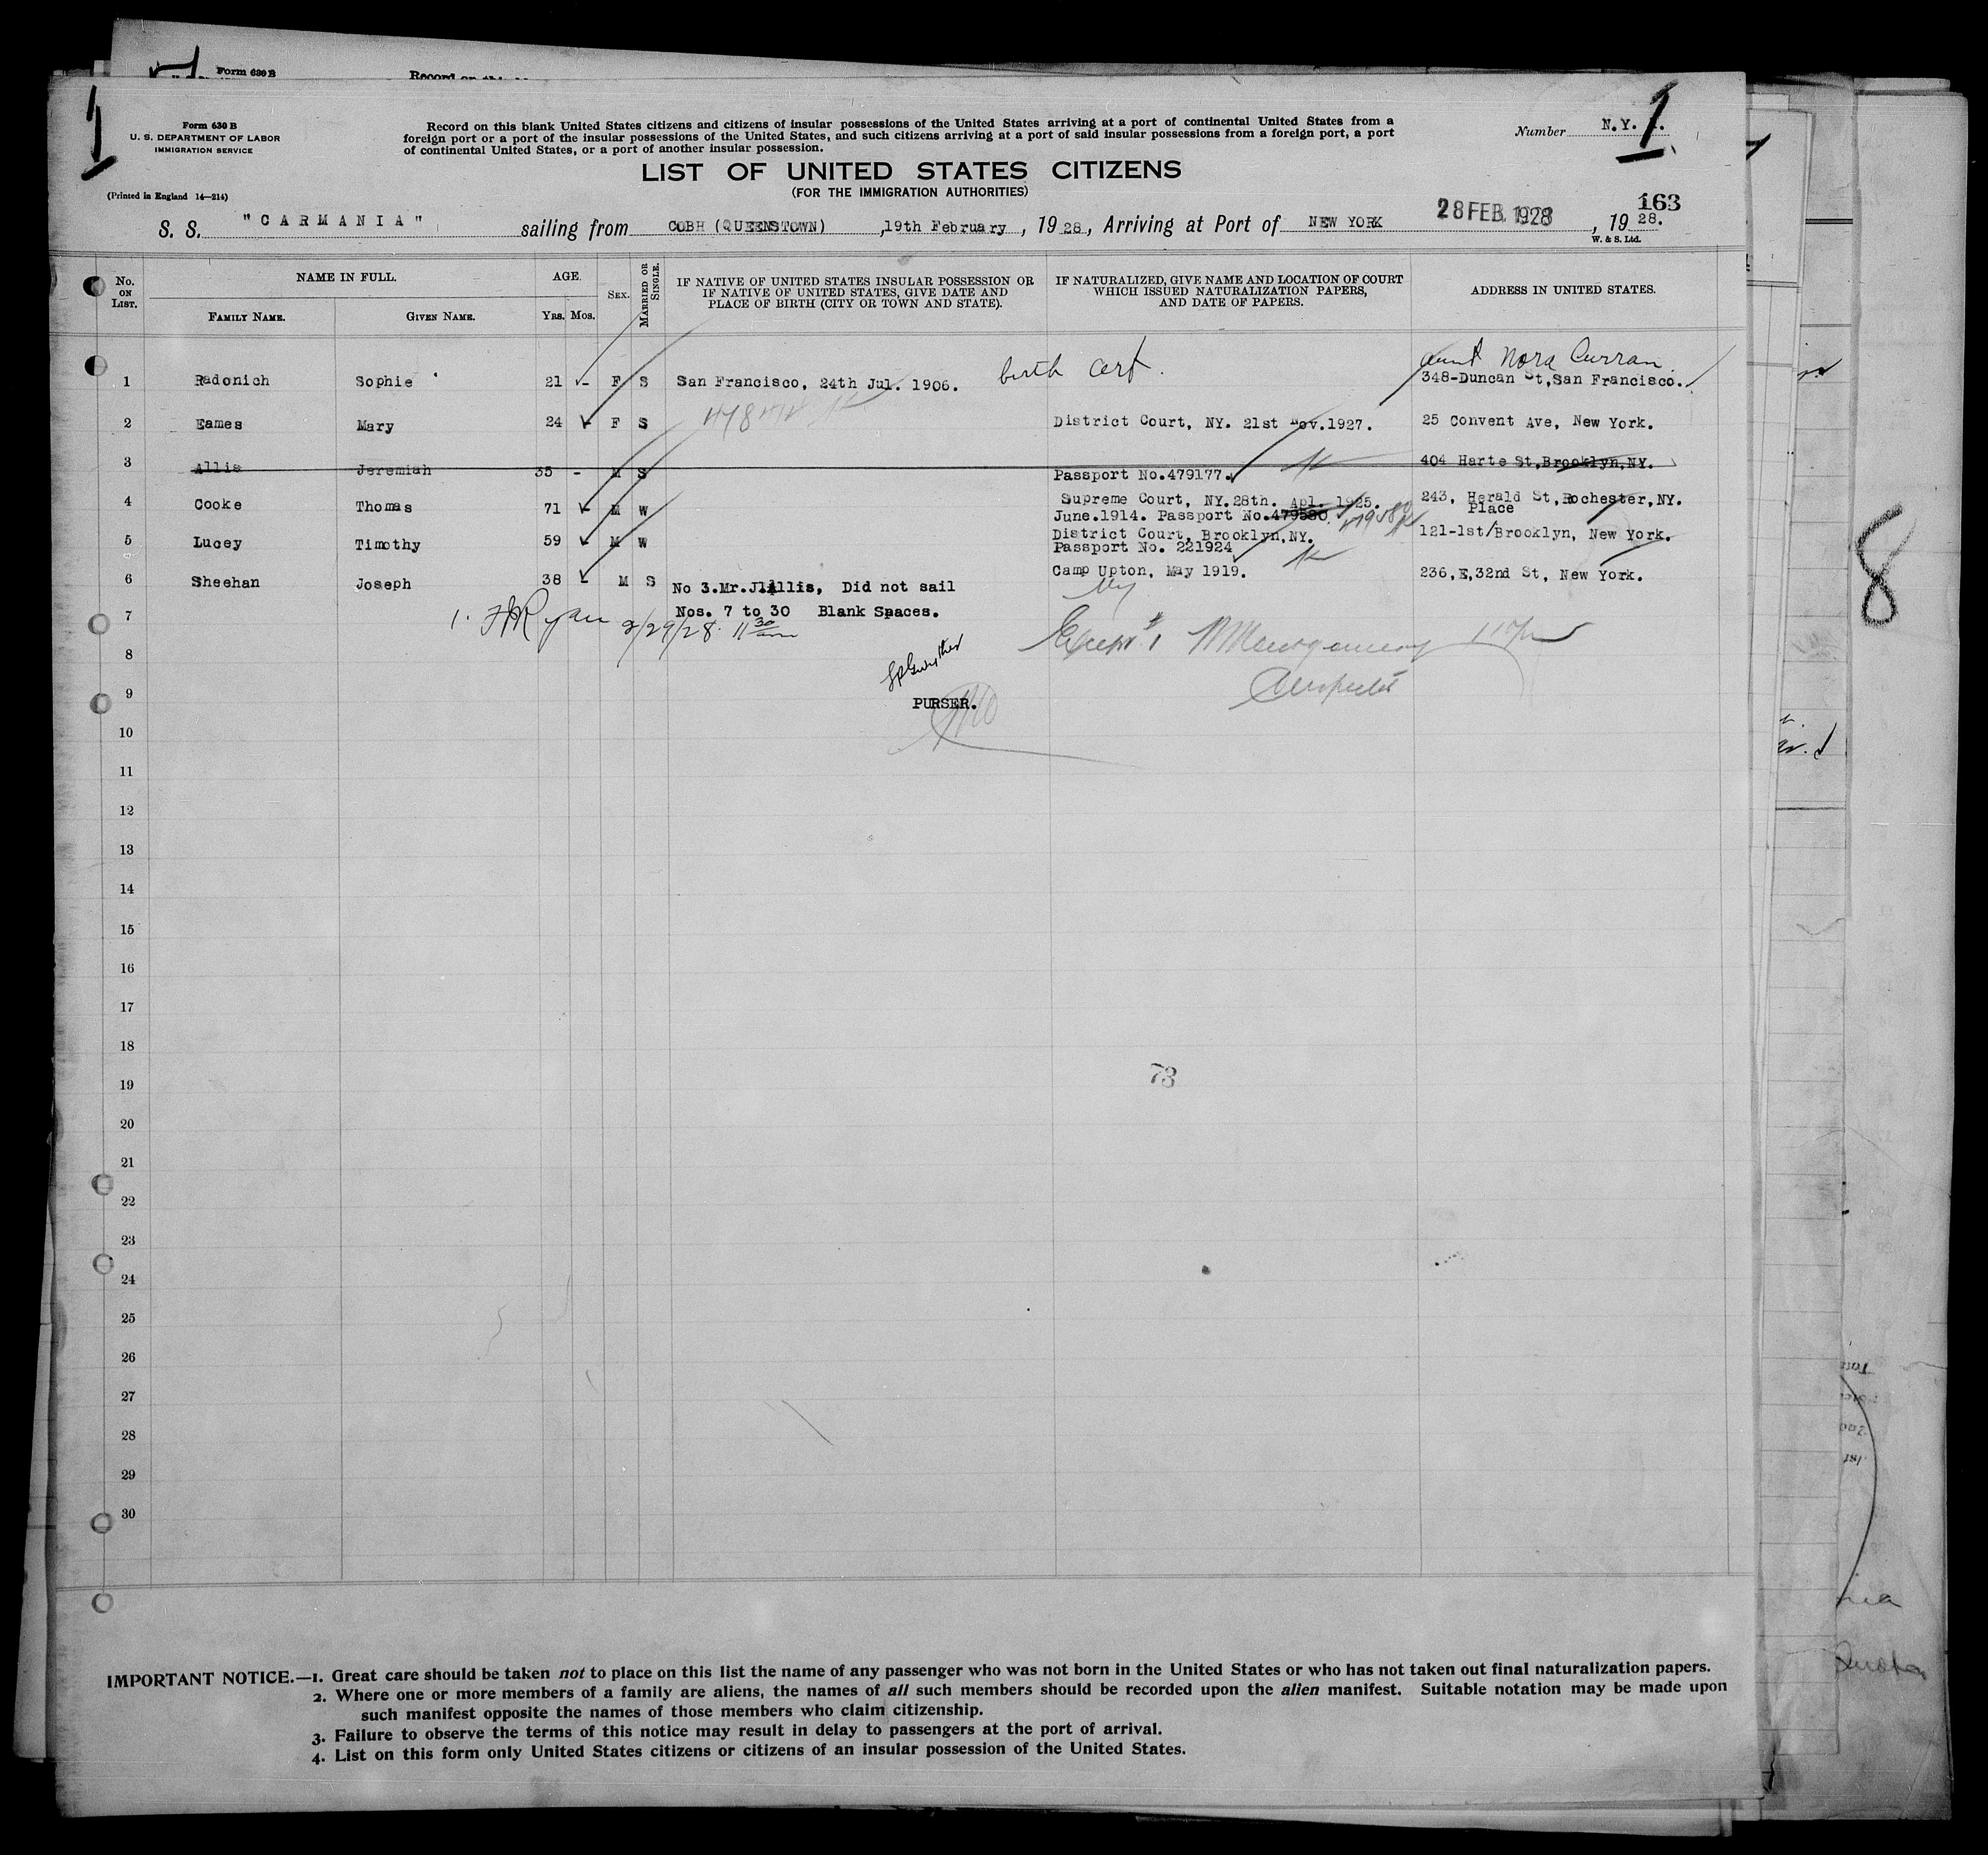 Form 630 B
Record on this
1
Form 630 B
U. S. DEPARTMENT OF LABOR
IMMIGRATION SERVICE
(Printed in England 14—214)
Record on this blank United States citizens and citizens of insular possessions of the United States arriving at a port of continental United States from a
foreign port or a port of the insular possessions of the United States, and such citizens arriving at a port of said insular possessions from a foreign port, a port
of continental United States, or a port of another insular possession.
Number N.Y. 1
LIST OF UNITED STATES CITIZENS
(FOR THE IMMIGRATION AUTHORITIES)
163
S. S. "CARMANIA" sailing from COBH (QUEENSTOWN) ,19th February, 1928, Arriving at Port of NEW YORK 28 FEB. 1928, 1928.
W. & S. Ltd.
No. ON LIST. NAME IN FULL. AGE. SEX. MARRIED OR SINGLE. IF NATIVE OF UNITED STATES INSULAR POSSESSION OR IF NATIVE OF UNITED STATES, GIVE DATE AND PLACE OF BIRTH (CITY OR TOWN AND STATE). IF NATURALIZED, GIVE NAME AND LOCATION OF COURT WHICH ISSUED NATURALIZATION PAPERS, AND DATE OF PAPERS. ADDRESS IN UNITED STATES.
FAMILY NAME. GIVEN NAME. YRS. MOS.
birth cert. aunt Nora Curran
1 Radonich Sophie 21 - F S San Francisco, 24th Jul. 1906. 348-Duncan St,San Francisco.
2 Eames Mary 24 - F S District Court, NY. 21st Nov.1927. 25 Convent Ave, New York.
3 Allis Jeremiah 35 - M S Passport No.479177. 404 Harte St,Brooklyn,NY.
4 Cooke Thomas 71 - M W Supreme Court, NY.28th. Apl. 1925. 243, Herald St,Rochester,NY.
June.1914. Passport No.479580 Place
5 Lucey Timothy 59 - M W District Court, Brooklyn,NY. 121-1st/Brooklyn, New York.
Passport No. 221924
6 Sheehan Joseph 38 - M S Camp Upton, May 1919. 236,E,32nd St, New York.
No 3.Mr.J.Allis, Did not sail
7 Nos. 7 to 30 Blank Spaces.
1. Ryan 2/29/28 11 30 am
8
Except #1 Montgomery
Inspector
9 PURSER.
10
11
12
13
14
15
16
17
18
73
19
20
21
22
23
24
25
26
27
28
29
30
IMPORTANT NOTICE.—1. Great care should be taken not to place on this list the name of any passenger who was not born in the United States or who has not taken out final naturalization papers.
2. Where one or more members of a family are aliens, the names of all such members should be recorded upon the alien manifest. Suitable notation may be made upon
such manifest opposite the names of those members who claim citizenship.
3. Failure to observe the terms of this notice may result in delay to passengers at the port of arrival.
4. List on this form only United States citizens or citizens of an insular possession of the United States.
8